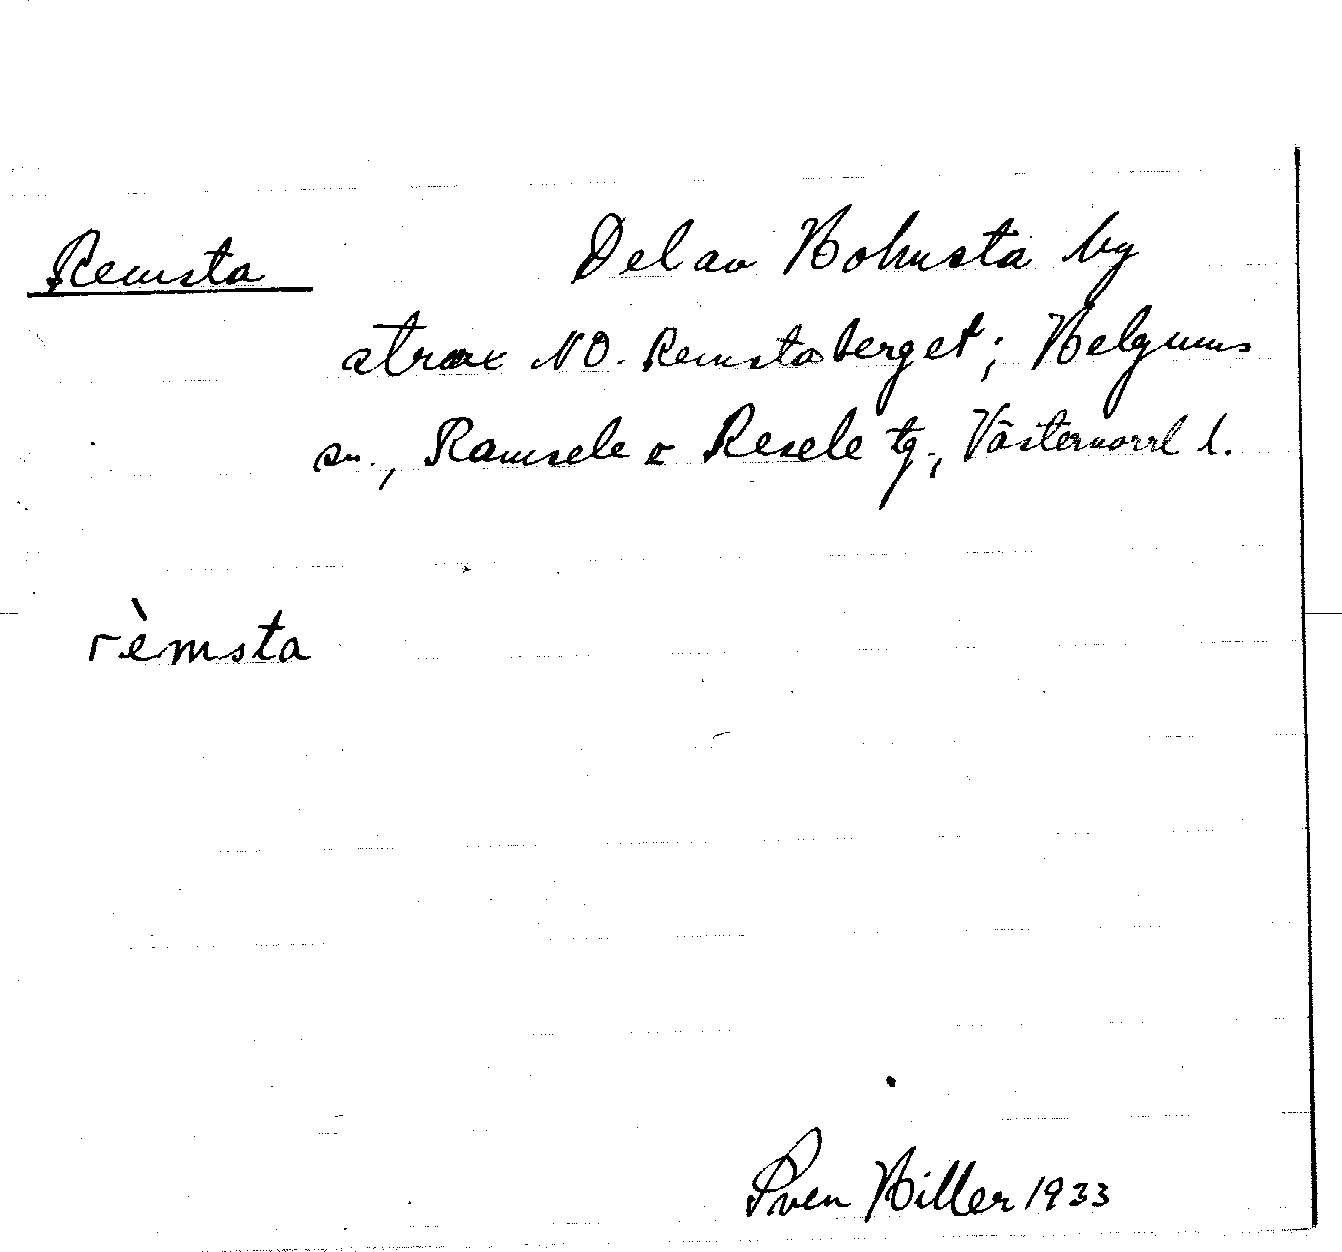 Remsta Del av Holmsta by
strax NO. Remstaberget; Helgums
sn., Ramsele o Resele tg., Västernorrl l.
rèmsta
Sven Hiller 1933